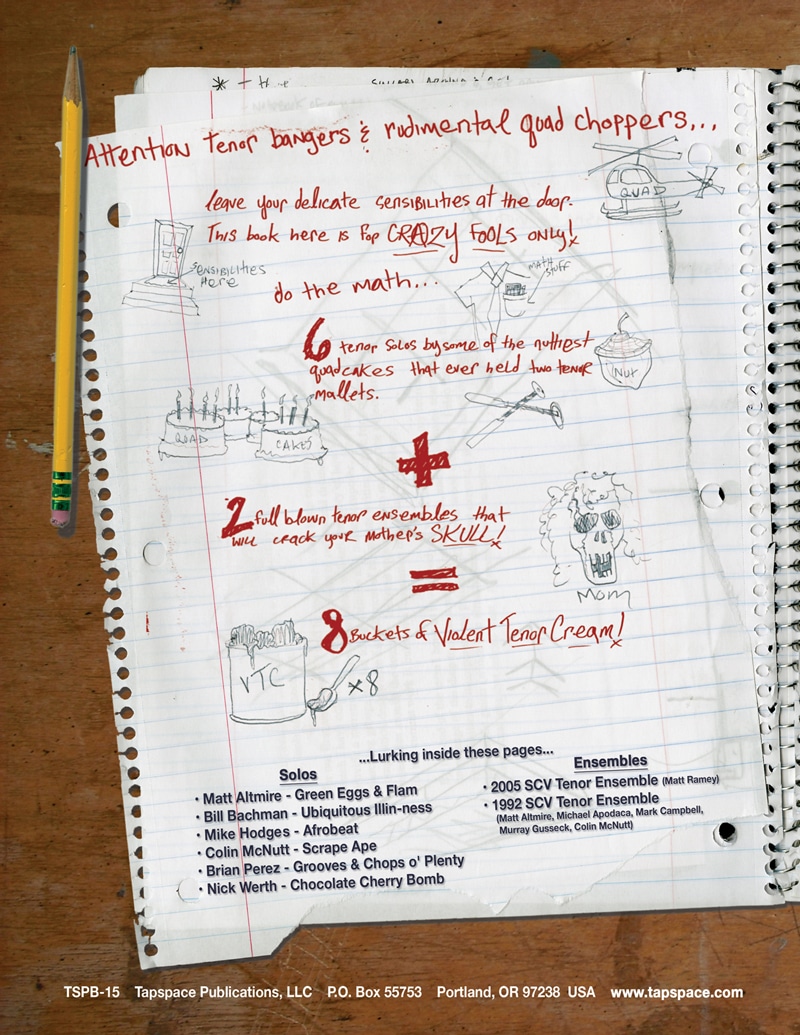 Attention tenor bangers & rudimental quad choppers...
leave your delicate sensibilities at the door.
This book here is for CRAZY FOOLS only!
QUAD
SENSIBILITIES
HERE
do the math...
MATH
STUFF
6 tenor solos by some of the nuttiest
quadcakes that ever held two tenor
mallets.
NUT
QUAD
CAKES
+
2 full blown tenor ensembles that
will crack your mother's SKULL!
Mom
=
8 Buckets of Violent Tenor Cream!
VTC
x8
...Lurking inside these pages...
Solos
• Matt Altmire - Green Eggs & Flam
• Bill Bachman - Ubiquitous Illin-ness
• Mike Hodges - Afrobeat
• Colin McNutt - Scrape Ape
• Brian Perez - Grooves & Chops o' Plenty
• Nick Werth - Chocolate Cherry Bomb
Ensembles
• 2005 SCV Tenor Ensemble (Matt Ramey)
• 1992 SCV Tenor Ensemble
(Matt Altmire, Michael Apodaca, Mark Campbell,
Murray Gusseck, Colin McNutt)
TSPB-15 Tapspace Publications, LLC P.O. Box 55753 Portland, OR 97238 USA www.tapspace.com